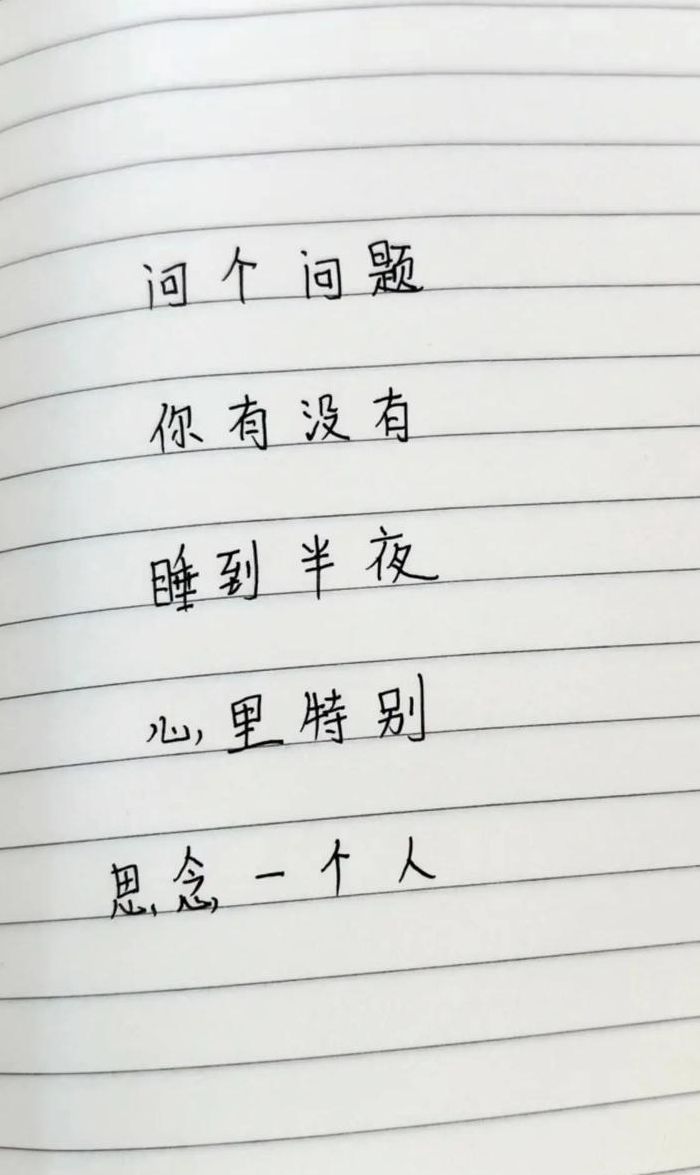 问个问题
你有没有
睡到半夜
心里特别
思念一个人